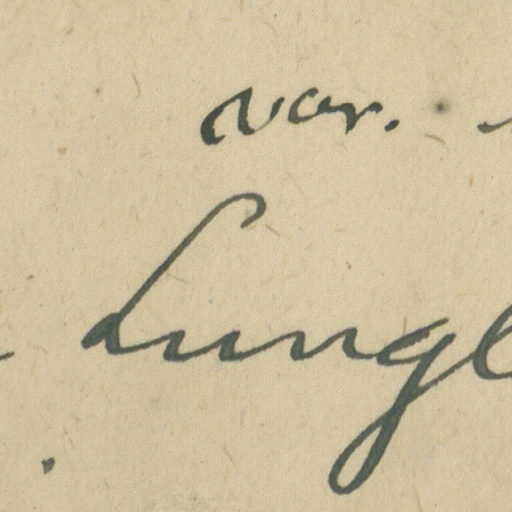 var.
Lungl